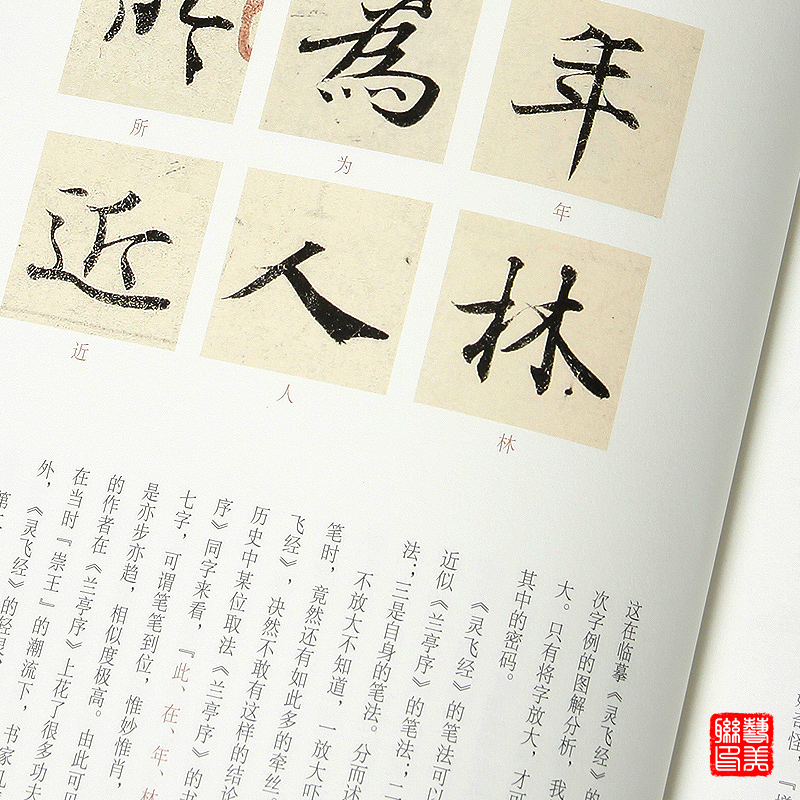 所
為
年
所
为
年
近
人
林
近
人
林
这在临摹《灵飞经》的
次字例的图解分析，我
大。只有将字放大，才可
其中的密码。
《灵飞经》的笔法可以
近似《兰亭序》的笔法；二
法；三是自身的笔法。分而述
不放大不知道，一放大吓
笔时，竟然还有如此多的牵丝
飞经》，决然不敢有这样的结论
历史中某位取法《兰亭序》的书
序》同字来看，『此、在、年、林
七字，可谓笔笔到位，惟妙惟肖，
是亦步亦趋，相似度极高。由此可见
的作者在《兰亭序》上花了很多功夫
在当时『崇王』的潮流下，书家几
外，《灵飞经》的轻灵
藝美
聯